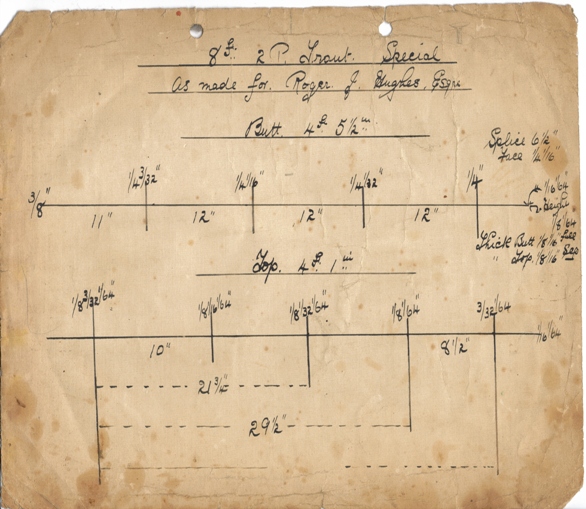 8 ft. 2 P. Trout. Special
As made for. Roger. J. Hughes, Esqre
Butt 4 ft 5 1/2 in
Splice 6 1/2"
Face 1/4 1/16"
3/8"
1/4 3/32"
1/4 1/16"
1/4 1/32"
1/4"
1/16 1/64
Height
1/8 1/64
11"
12"
12"
12"
Thick Butt 1/8 1/16
" Top. 1/8 1/16"
Top. 4 ft 1 in
1/8 3/32 1/64"
1/8 1/16 1/64"
1/8 1/32 1/64"
1/8 1/64"
3/32 1/64
1/16 1/64"
10"
8 1/2"
21 3/4"
29 1/2"